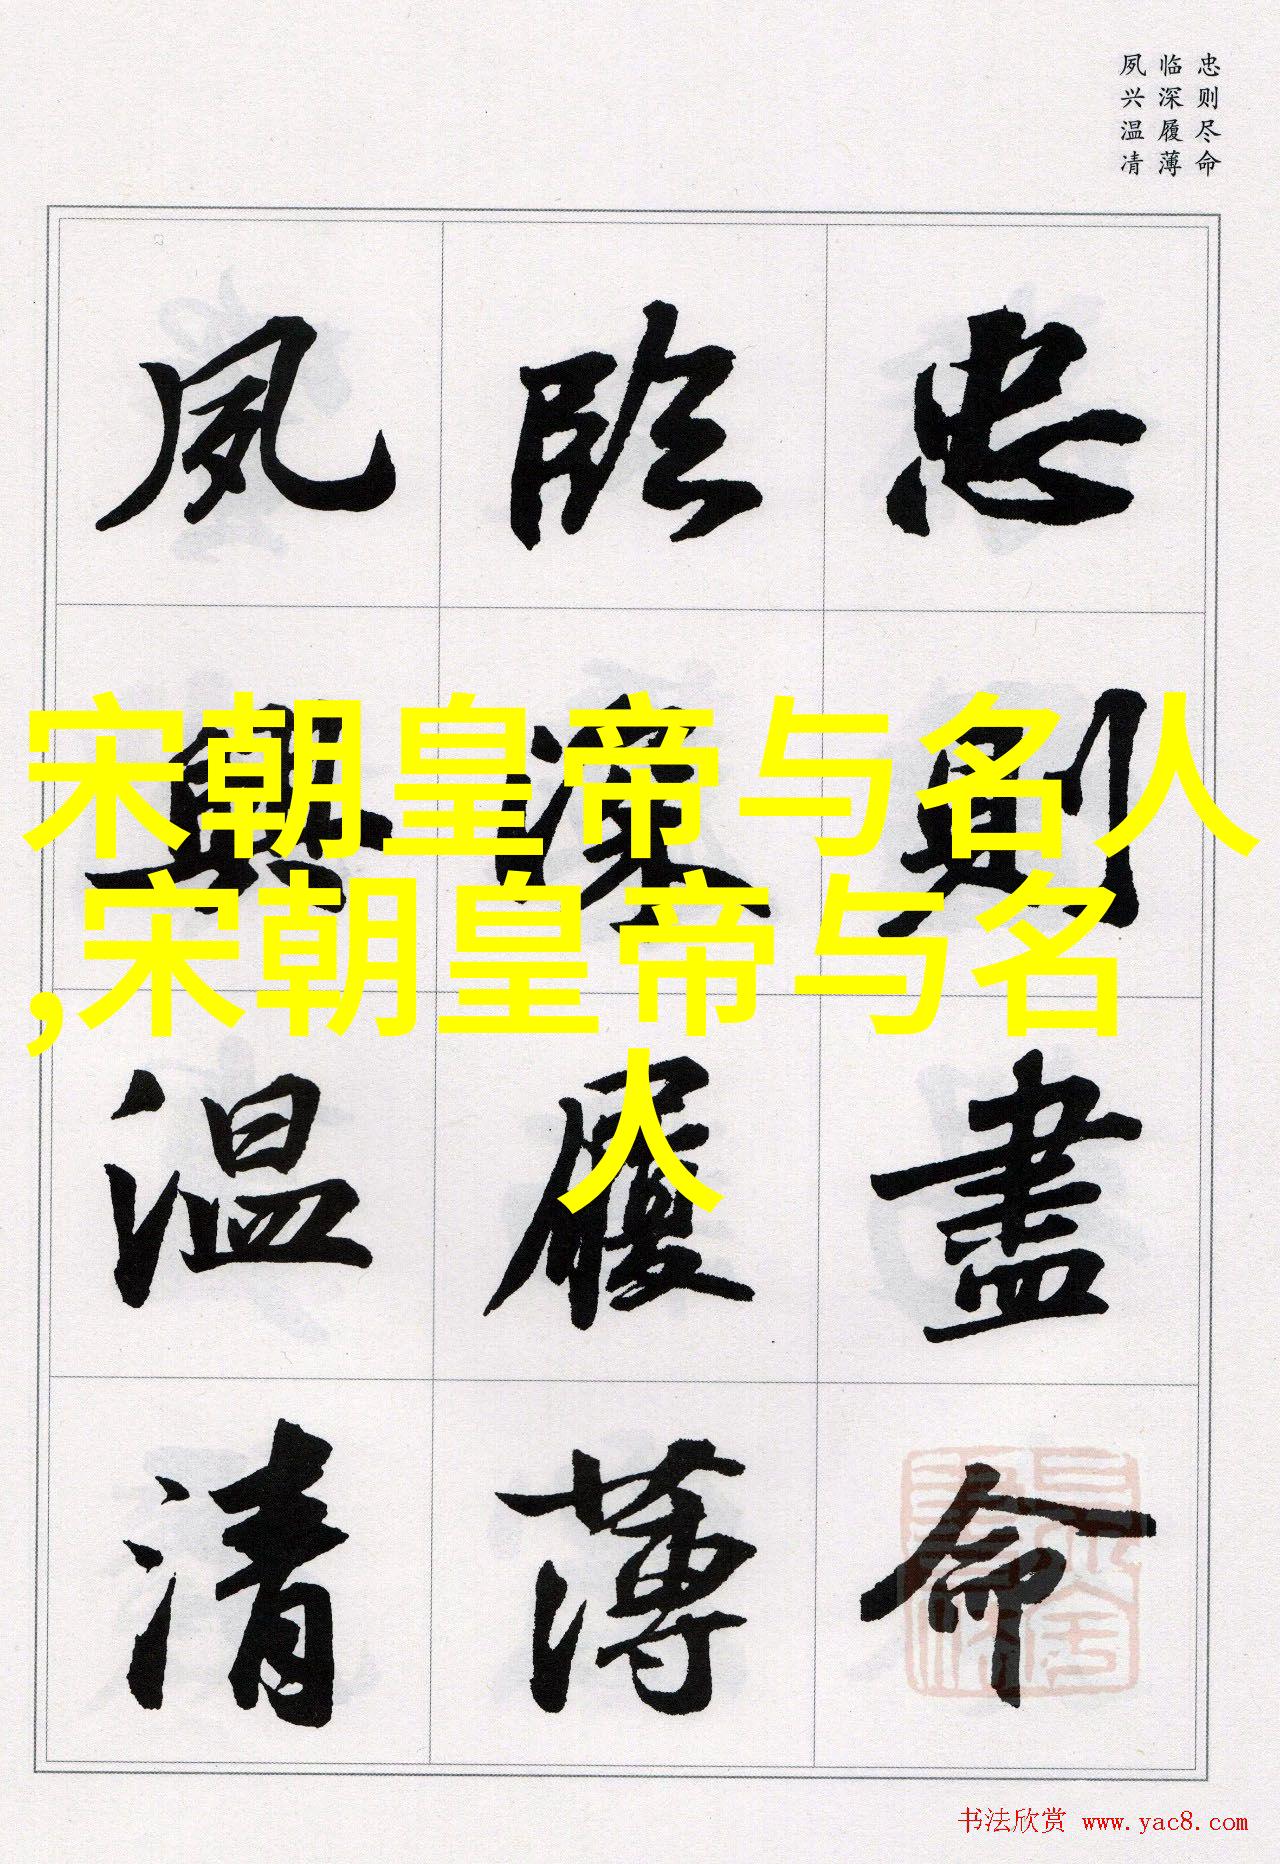 忠则尽命
临深履薄
夙兴温凊
忠則盡命
臨深履薄
夙興温清
宋朝皇帝与名人
,宋朝皇帝与名
人
书法欣赏 www.yac8.com